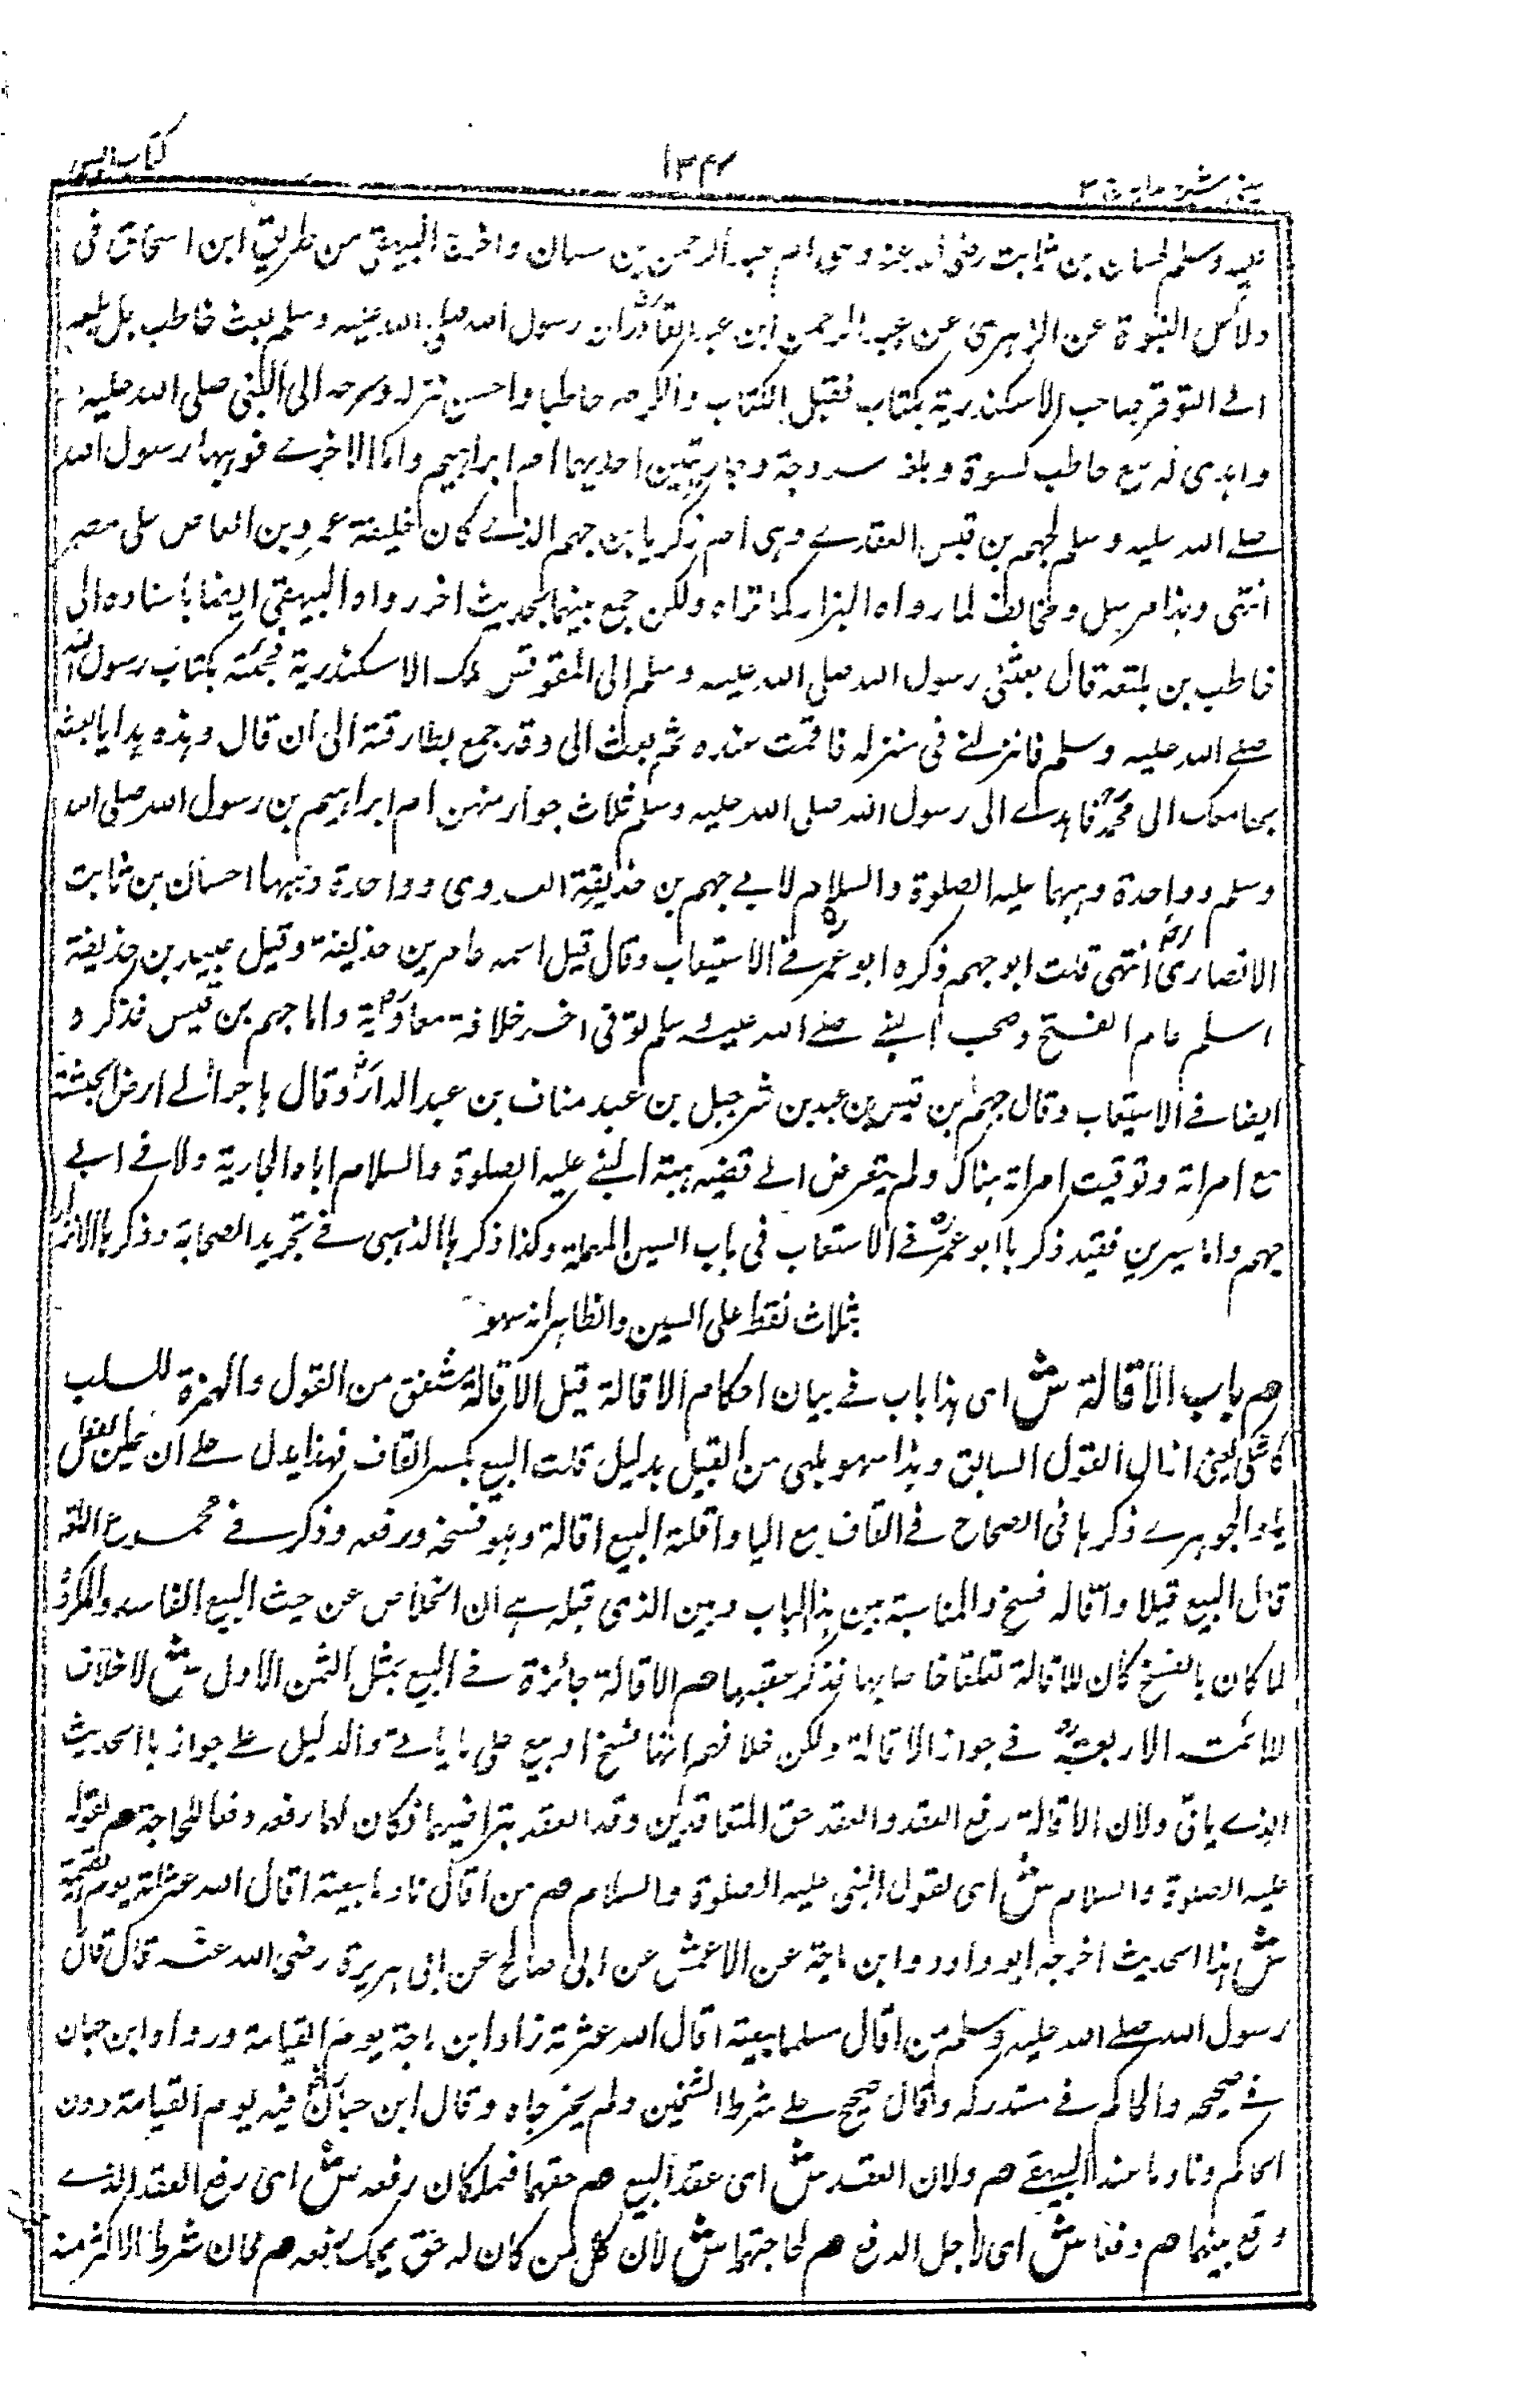 كتاب البيوع
١٣٤
عينى شرح هداية ج ٣
عليه وسلم لحسان بن ثابت رضى الله عنه وهى ام عبد الرحمن بن حسان واخرج البيهقى من طريق ابن اسحاق فى
دلائل النبوة عن الزهرى عن عبد الرحمن ابن عبد القادر ان رسول الله صلى الله عليه وسلم بعث حاطب بل بلتعه
الى المقوقس صاحب الاسكندرية بكتاب فقبل الكتاب واكرم حاطبا واحسن نزله وسرحه الى النبى صلى الله عليه
واهدى له مع حاطب كسوة وبغلة بسروجه وجاريتين احديهما ام ابراهيم واما الاخرى فوهبها رسول الله
صلى الله عليه وسلم لجهم بن قيس العبدرى وهى ام زكريا بن جهم الذى كان خليفة عمرو بن العاص على مصر
انتهى وهذا مرسل ومخالف لما رواه البزار كما تراه ولكن جمع بينهما بحديث اخر رواه البيهقى ايضا باسناده الى
حاطب بن بلتعه قال بعثنى رسول الله صلى الله عليه وسلم الى المقوقس ملك الاسكندرية فجئته بكتاب رسول الله
صلى الله عليه وسلم فانزلنى فى منزله فاقمت عنده ثم بعث الى وقد جمع بطارقته الى ان قال وهذه هدايا ابعث
بها معك الى محمد فاهدى الى رسول الله صلى الله عليه وسلم ثلاث جوار منهن ام ابراهيم بن رسول الله صلى الله
وسلم وواحدة وهبها عليه الصلوة والسلام لابى جهم بن حذيفة العدوى وواحدة وهبها حسان بن ثابت
الانصارى انتهى قلت ابو جهم ذكره ابو عمر فى الاستيعاب وقال قيل اسمه عامر بن حذيفة وقيل عبيد بن حذيفة
اسلم عام الفتح وصحب النبى صلى الله عليه وسلم توفى اخر خلافة معاوية واما جهم بن قيس فذكره
ايضا فى الاستيعاب وقال جهم بن قيس بن عبد بن شرحبيل بن عبد مناف بن عبد الدار وقال هاجر الى ارض الحبشة
مع امراته وتوفيت امراته هناك ولم يتعرض الى قضيه هبة النبى عليه الصلوة والسلام اياه الجارية ولا فى ابى
جهم واما سيرين فقيد ذكرها ابو عمر فى الاستعاب فى باب السين المهملة وكذا ذكرها الذهبى فى تجريد الصحابة وذكرها الانزارى
بثلاث نقط على السين والظاهر انه سهو
هم باب الاقالة ش اى هذا باب فى بيان احكام الاقالة قيل الاقالة مشتق من القول والهمزة للسلب
كاشكى يعنى ازال القول السابق وهذا سهو بل هى من القيل بدليل قلت البيع بكسر القاف فهذا يدل على ان عين الفعل
ياء والجوهرى ذكرها فى الصحاح فى القاف مع اليا واقلته البيع اقالة وهو فسخه ورفعه وذكر فى مجموع اللغه
قال البيع قيلا واقاله فسخ والمناسبة بين هذا الباب وبين الذى قبله هى ان الخلاص عن حيث البيع الفاسد والمكروه
لما كان بالفسخ كان للاقالة تعلقا خاصا بهما فذكر عقبهما هم الاقالة جائزة فى البيع بمثل الثمن الاول ش لا خلاف
للائمة الاربعة فى جواز الاقالة ولكن خلافهم انها فسخ او بيع على ما ياتى والدليل على جوازها الحديث
الذى ياتى ولان الاقالة رفع العقد والعقد حق المتعاقدين وقد انعقد بتراضيهما فكان لهما رفعه دفعا للحاجة هم لقوله
عليه الصلوة والسلام ش اى لقول النبى عليه الصلوة والسلام هم من اقال نادما بيعته اقال الله عثرته يوم القيمة
ش هذا الحديث اخرجه ابو داود وابن ماجة عن الاعمش عن ابى صالح عن ابى هريرة رضى الله عنه قال قال
رسول الله صلى الله عليه وسلم من اقال مسلما بيعته اقال الله عثرته زاد ابن ماجة يوم القيامة ورواه ابن حبان
فى صحيحه والحاكم فى مستدركه وقال صحيح على شرط الشيخين ولم يخرجاه وقال ابن حبان فيه يوم القيامة دون
الحاكم ونادما عند البيهقى هم ولان العقد ش اى عقد البيع هم حقهما فيملكان رفعه ش اى رفع العقد الذى
وقع بينهما هم دفعا ش اى لاجل الدفع هم لحاجتهما ش لان كل من كان له حق يملك رفعه هم فان شرط الاكثر منه